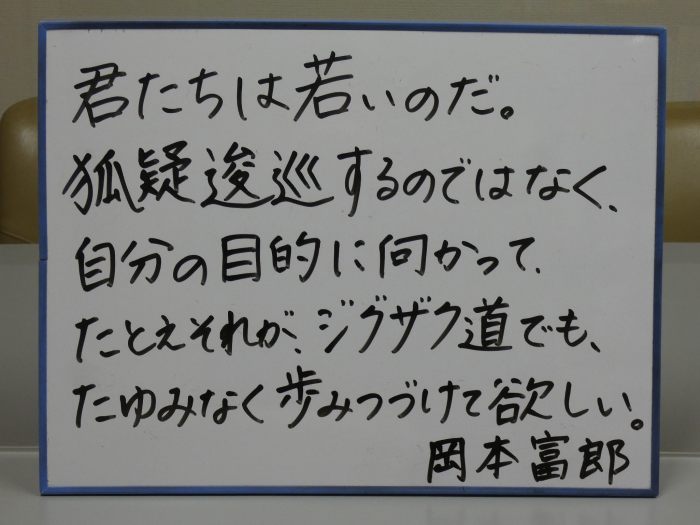 君たちは若いのだ。
狐疑逡巡するのではなく、
自分の目的に向かって、
たとえそれが、ジグザク道でも、
たゆみなく歩みつづけて欲しい。
岡本富郎